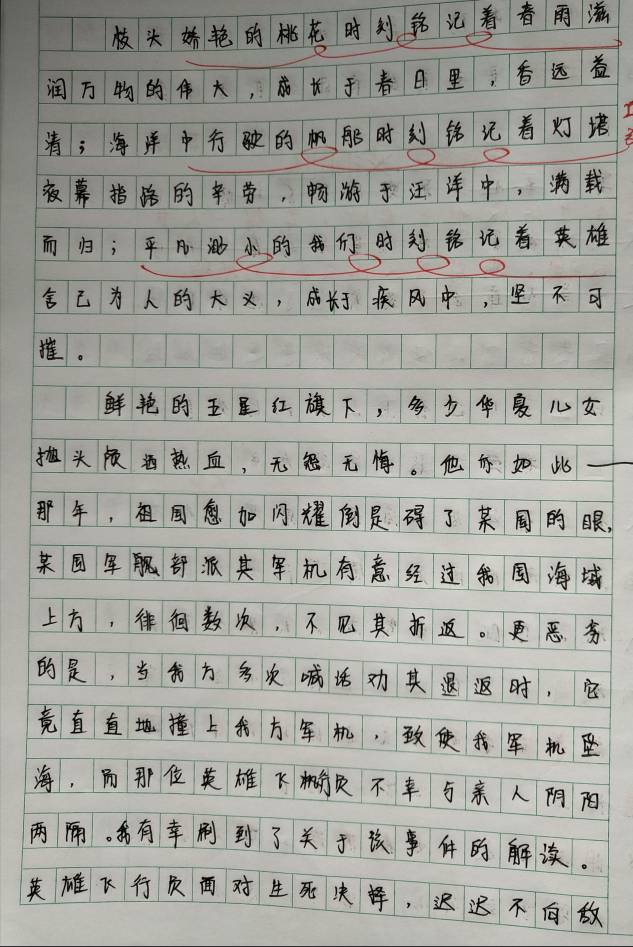 枝头娇艳的桃花时刻铭记着春雨滋
润万物的伟大，成长于春日里，香远益
清；海洋中行驶的帆船时刻铭记着灯塔
夜幕指路的辛劳，畅游于汪洋中，满载
而归；平凡渺小的我们时刻铭记着英雄
舍己为人的大义，成长于疾风中，坚不可
摧。
鲜艳的五星红旗下，多少华夏儿女
抛头颅洒热血，无怨无悔。他亦如此——
那年，祖国愈加闪耀倒是碍了某国的眼，
某国军舰部派其军机有意经过我国海域
上方，徘徊数次，不见其折返。更恶劣
的是，当我方多次喊话劝其退返时，它
竟直直地撞上我方军机，致使我军机坠
海，而那位英雄飞行员不幸与亲人阴阳
两隔。我有幸刷到了关于该事件的解读。
英雄飞行员面对生死决择，迟迟不向敌